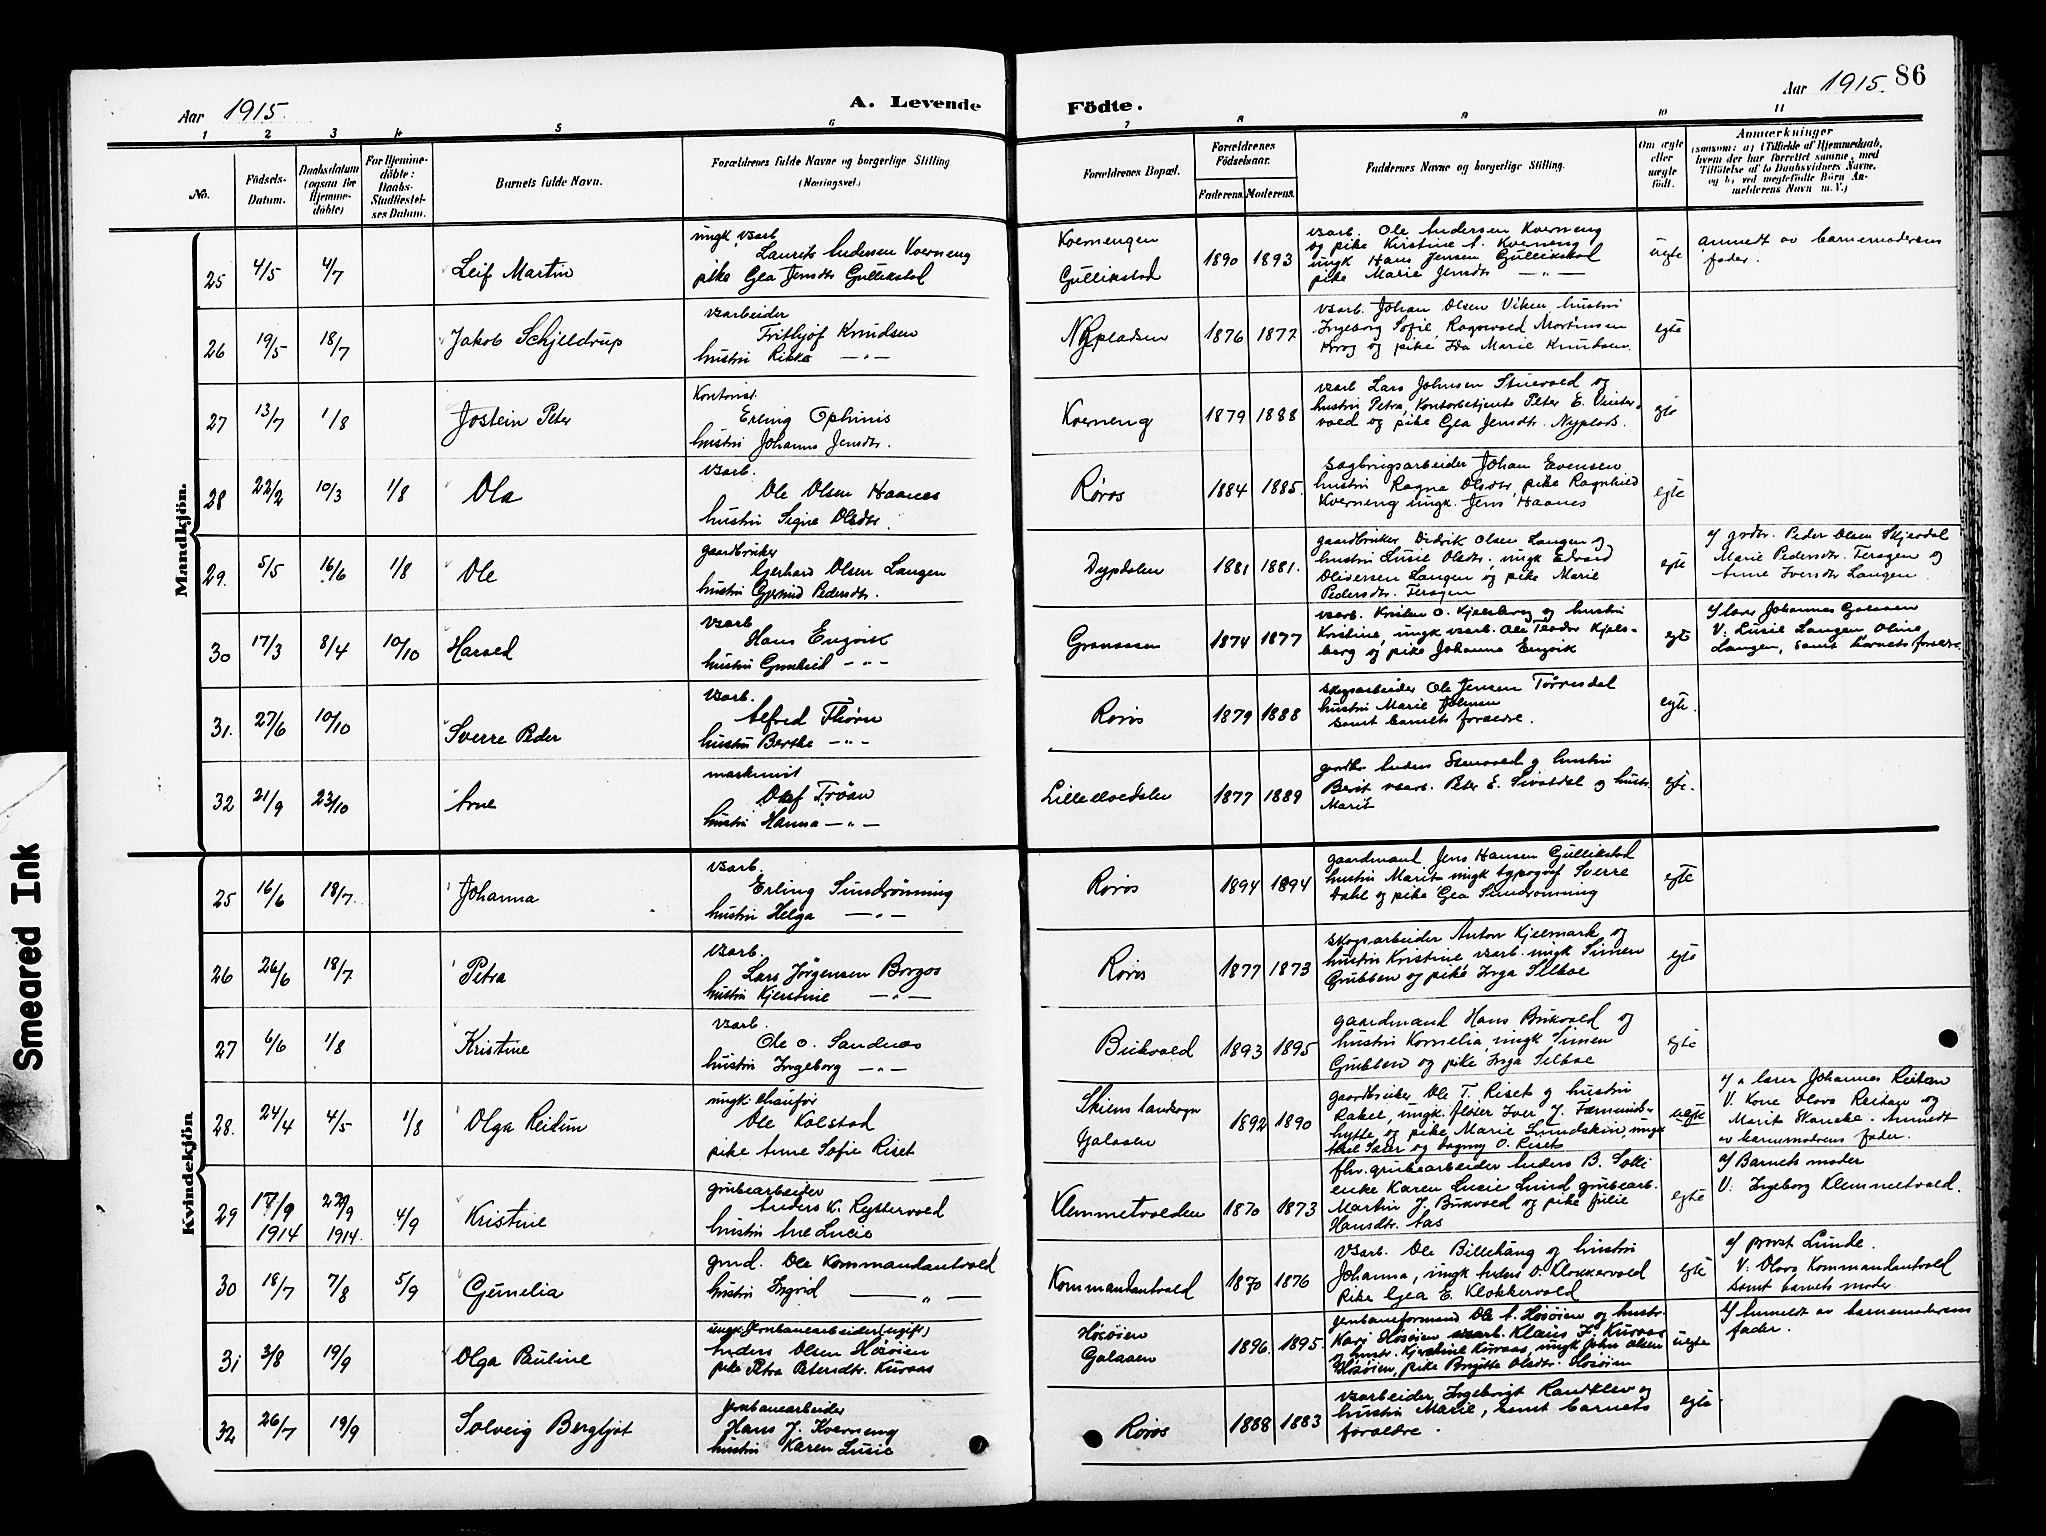 Aar 1915.
A. Levende
Födte.
Aar 1915.
86
1 2 3 4 5 6 7 8 9 10 11
No.
Födsels-
Datum.
Daabsdatum
(ogsaa for
Hjemme-
döbte)
For Hjemme-
döbte:
Daabs-
Stadfæstel-
ses Datum.
Barnets fulde Navn.
Forældrenes fulde Navne og borgerlige Stilling
(Næringsvei.)
Forældrenes Bopæl.
Forældrenes
Födselsaar.
Faderens. Moderens.
Faddernes Navne og borgerlige Stilling.
Om ægte
eller
uægte
födt.
Anmærkninger
(saasom: a) i Tilfælde af Hjemmedaab,
hvem der har forrettet samme, med
Tilföielse af to Daabsvidners Navne,
og b) ved uægtefödte Börn An-
melderens Navn m. V.)
Mandkjön.
25 4/5 4/7 Leif Martin
ungk. vsarb
Laurits Andersen Kverneng
pike Gea Jensdtr Gullikstad
Kvernengen
Gullikstad
1890 1893
vsarb. Ole Andersen Kverneng
og pike Kristine A. Kverneng
ungk Hans Jensen Gullikstad
pike Marie Jensdtr —"—
uegte
anmeldt av barnemoderens
fader.
26 19/5 18/7 Jakob Schjeldrup
vsarbeider
Frithjof Knudsen
hustru Rikka —"—
Nypladsen
1876 1877
vsarb. Johan Olsen Viken hustru
Ingeborg Sofie Ragnvald Mortinsen
Krog og pike Ida Marie Knudsen.
egte
27 13/7 1/8 Jostein Peter
Kontorist.
Erling Ophus
hustru Johanna Jensdtr.
Kverneng
1879 1888
vsarb Lars Johnsen Stuevold og
hustru Petra, Kontorbetjent Peter E. Vinter-
vold og pike Gea Jensdtr. Nyplads.
egte
28 22/2 10/3 1/8 Ola
vsarb.
Ole Olsen Haanes
hustru Signe Olsdtr.
Røros
1884 1885.
sagbrugsarbeider Johan Evensen
hustru Ragna Olsdtr, pike Ragnhild
Kverneng ungk. Jens Haanes
egte
29. 5/5 16/6 1/8 Ole
gaardbruker
Gerhard Olsen Langen
hustru Gjertrud Pedersdtr.
Dypdalen
1881 1881.
gaardbruker Didrik Olsen Langen og
hustru Lusie Olsdtr, ungk Edvard
Olidersen Langen og pike Marie
Pedersdtr. Feragen
egte
af grdbr. Peder Olsen Skjevdal
Marie Pedersdtr. Feragen og
Anne Iversdtr Langen
30 17/3 8/4 10/10 Harald
vsarb
Hans Engvik
hustru Gunhild —"—
Granaasen
1874 1877
vsarb. Kristen O. Kjelsberg og hustru
Kristine, ungk vsarb. Ole Teodor Kjels-
berg og pike Johanna Engvik
egte
af lærer Johannes Galaaen
V. Lusie Langen Oline
Langen, samt barnets forældre.
31. 27/6 10/10 Sverre Peder
vsarb.
Alfred Thorn
hustru Berthe —"—
Røros
1879 1888
skogsarbeider Ole Jensen Tørresdal
hustru Marie Johnsen
samt barnets forældre.
egte.
32 21/9 23/10 Arne
maskinist
Olaf Trøan
hustru Hanna —"—
Lilleelvedalen
1877 1889
gaardbr Anders Stenvold og hustru
Berit vsarb. Peter E. Sivaldal og hustr.
Marit
egte.
Kvindekjön
25 16/6 18/7. Johanna
vsarb.
Erling Sundrønning
hustru Helga —"—
Røros
1894 1894
gaardmand Jens Hansen Gullikstad
hustru Marit ungk typograf Sverre
Dahl og pike Gea Sundrønning
egte
26 26/6 18/7 Petra
vsarb.
Lars Jørgensen Borgos
hustru Kjerstine —"—
Røros
1877 1873
skogsarbeider Anton Kjelmark og
hustru Kristine vsarb. ungk Simen
Grubben og pike Inga Selboe
egte
27 6/6 1/8 Kristine
vsarb.
Ole O. Sandnes
hustru Ingeborg —"—
Bukvold
1893 1895
gaardmand Hans Bukvold og
hustru Kornelia, ungk Simen
Grubben og pike Inga Selboe
egte
28. 24/4 4/5 1/8 Olga Reidun
ungk. chaufør
Ole Kolstad
pike Anne Sofie Riset
Skiens landsogn
Galaaen
1892 1890
gaardbruker Ole T. Riset og hustru
Rakel, ungk. fløter Iver J. Fæmunds-
hytte og pike Marie Lundskin, ungk
Axel Sæter og Dagny O. Riset
uegte
af a lærer Johannes Reitan
V. Kone Olava Reitan og
Marit Skancke. Anmeldt
av barnemodrens fader.
29 17/9 1914 22/9 1914. 4/9 Kristine
grubearbeider
Anders K. Ryttervold
hustru Ane Lucie
Klemmetvolden
1870 1873
fhv. grubearbeider Anders B. Solli
enke Karen Lucie Lund grubearb.
Martin J. Bukvold og pike Julie
Hansdtr. Aas
egte
af Barnets moder
V. Ingeborg Klemmetvold.
30 18/7 7/8 5/9 Gunelia
gmd. Ole Kommandantvold
hustru Ingrid —"—
Kommandantvold
1870 1876
vsarb. Ole Billehaug og hustru
Johanna, ungk Anders O. Klokkervold
Pike Gea E. Klokkervold
egte
af provst Lunde.
V. Olava Kommandantvold
samt barnets moder
31 3/8 19/9 Olga Pauline
ungk. Jernbanearbeider (ugift)
Anders Olsen Høsøien
pike Petra Petersdtr. Kuraas
Høsøien
Galaaen
1896. 1895.
jernbaneformand Ole A. Høsøien og hustr.
Kari Høsøien vsarb. Klaus J. Kuraas
og hustr. Kjerstine Kuraas, ungk John Olsen
Høsøien, pike Birgitte Olsdtr. Høsøien
uegte
af Anmeldt av barnemoderens
fader.
32 26/7 19/9 Solveig Bergljot
Jernbanearbeider
Hans J. Kverneng
hustru Karen Lusie
Røros
1888 1883
vsarbeider Ingebrigt Randklev og
hustru Marie, samt barnets
forældre.
egte
Smeared Ink